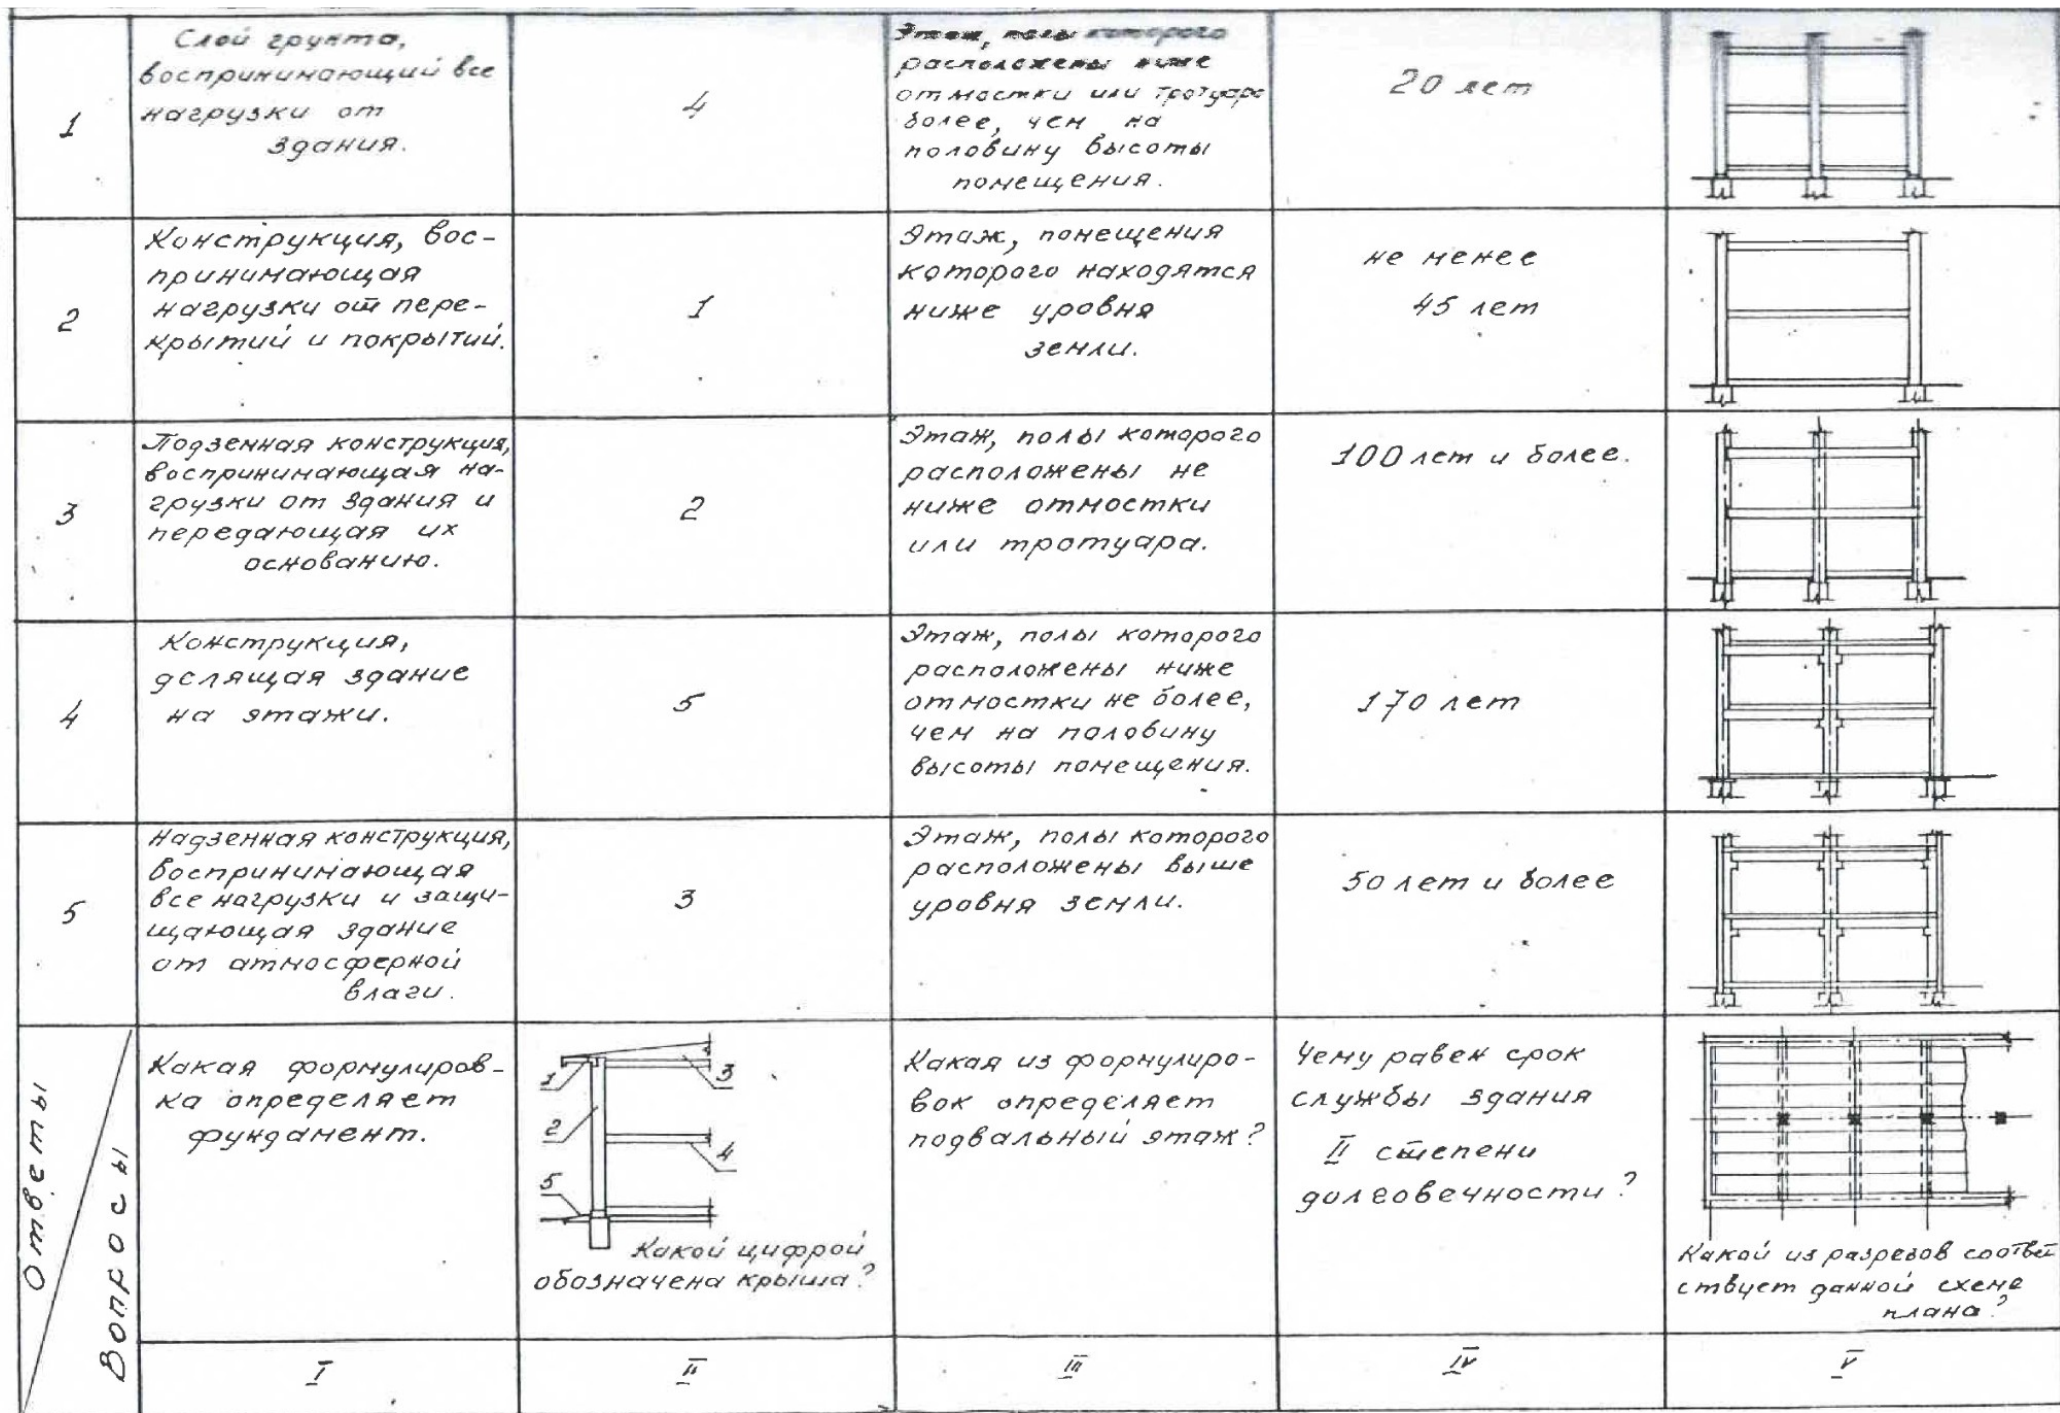 1
Слой грунта,
воспринимающий все
нагрузки от
здания.
4
Этаж, полы которого
расположены ниже
отмостки или тротуара
более, чем на
половину высоты
помещения.
20 лет
2
Конструкция, вос-
принимающая
нагрузки от пере-
крытий и покрытий.
1
Этаж, помещения
которого находятся
ниже уровня
земли.
не менее
45 лет
3
Подземная конструкция,
воспринимающая на-
грузки от здания и
передающая их
основанию.
2
Этаж, полы которого
расположены не
ниже отмостки
или тротуара.
100 лет и более.
4
Конструкция,
делящая здание
на этажи.
5
Этаж, полы которого
расположены ниже
отмостки не более,
чем на половину
высоты помещения.
170 лет
5
Надземная конструкция,
воспринимающая
все нагрузки и защи-
щающая здание
от атмосферной
влаги.
3
Этаж, полы которого
расположены выше
уровня земли.
50 лет и более
Ответы
Вопросы
Какая формулиров-
ка определяет
фундамент.
1
3
2
4
5
Какой цифрой
обозначена крыша?
Какая из формулиро-
вок определяет
подвальный этаж?
Чему равен срок
службы здания
II степени
долговечности?
Какой из разрезов соответ
ствует данной схеме
плана?
I
II
III
IV
V